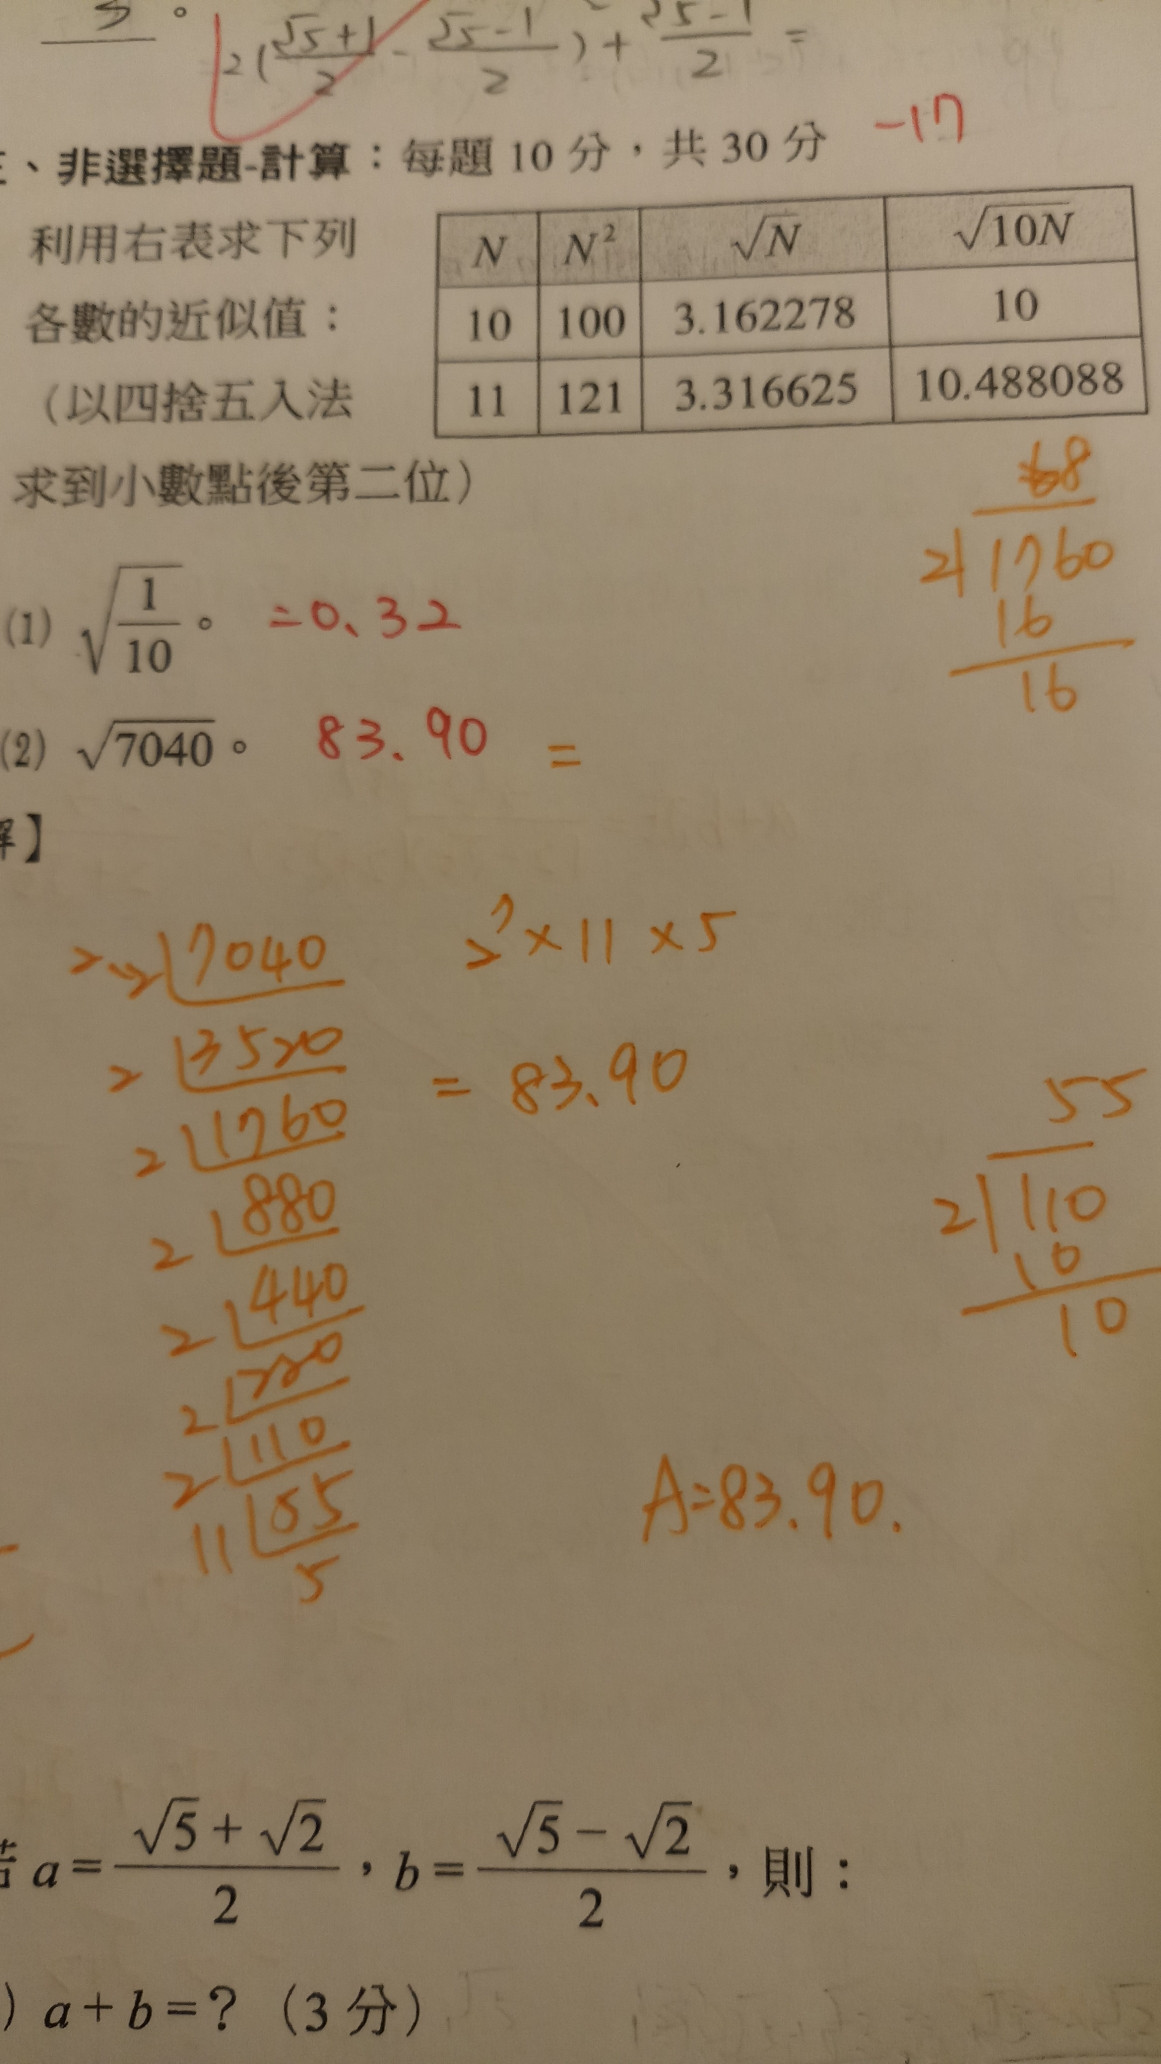 2(√5+1/2 - √5-1/2) + √5-1/2 =
、非選擇題-計算：每題 10 分，共 30 分 -17
利用右表求下列
各數的近似值：
（以四捨五入法
求到小數點後第二位）
N N² √N √10N
10 100 3.162278 10
11 121 3.316625 10.488088
(1) √1/10。 =0.32
(2) √7040。 83.90 =
解】
68
2 1760
16
16
2 7040
2 3520
2 1760
2 880
2 440
2 220
2 110
11 55
5
2⁷×11×5
= 83.90
55
2 110
10
10
A=83.90.
若 a = √5 + √2/2，b = √5 − √2/2，則：
) a + b = ?（3 分）